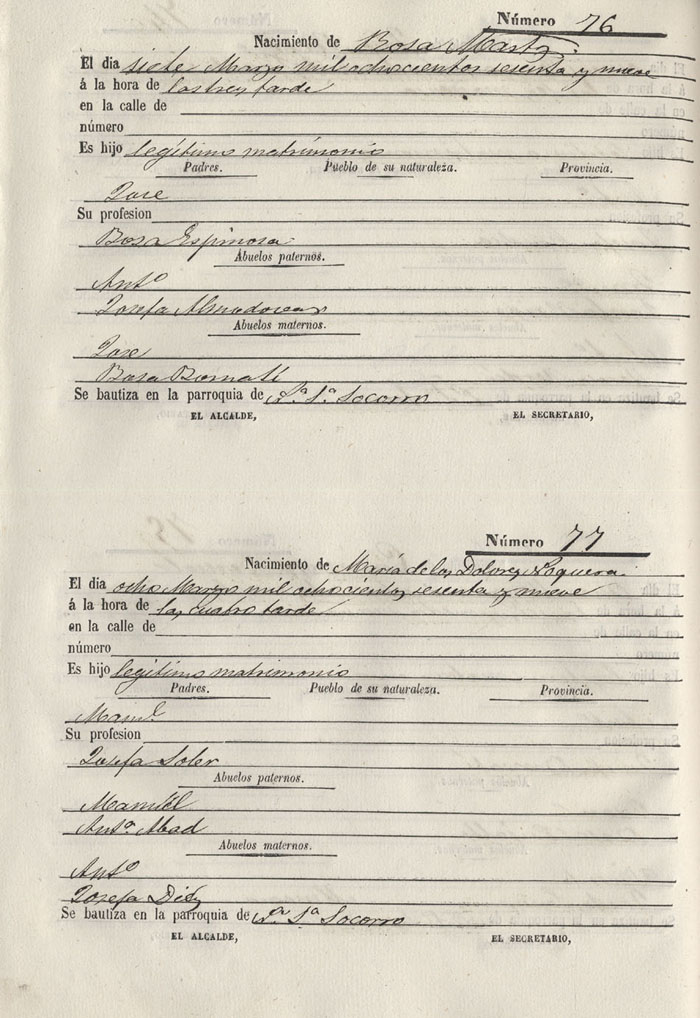 Número 76
Nacimiento de Rosa Martz.
El dia siete Marzo mil ochocientos sesenta y nueve
á la hora de las tres tarde
en la calle de
número
Es hijo legítimo matrimonio
Padres. Pueblo de su naturaleza. Provincia.
Jose
Su profesion
Rosa Espinosa
Abuelos paternos.
Antº
Josefa Almodovar
Abuelos maternos.
Jose
Rosa Bernati
Se bautiza en la parroquia de Nª Sª Socorro
EL ALCALDE, EL SECRETARIO,
Número 77
Nacimiento de María de los Dolores Noguera.
El dia ocho Marzo mil ochocientos sesenta y nueve
á la hora de las cuatro tarde
en la calle de
número
Es hijo legítimo matrimonio
Padres. Pueblo de su naturaleza. Provincia.
Manl.
Su profesion
Josefa Soler
Abuelos paternos.
Manuel
Antª Abad
Abuelos maternos.
Antº
Josefa Diez
Se bautiza en la parroquia de Nª Sª Socorro
EL ALCALDE, EL SECRETARIO,